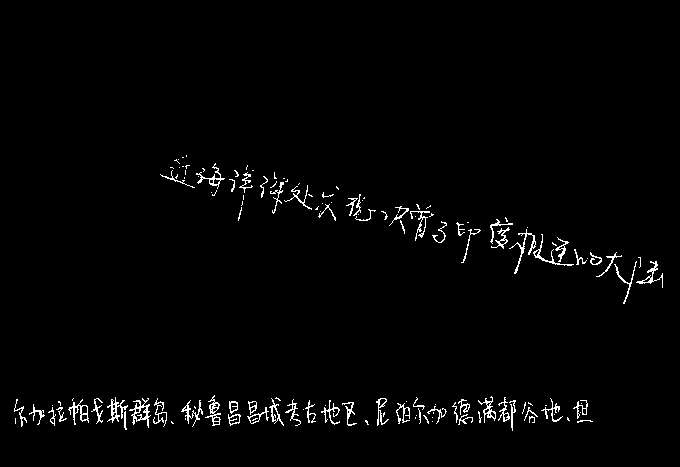 近海洋深处发现次曾了印度板造的大陆
尔加拉帕戈斯群岛、秘鲁昌昌城考古地区、尼泊尔加德满都谷地、坦